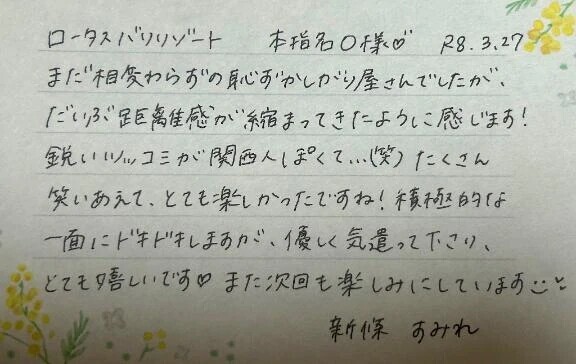 ロータスバリリゾート 本指名〇様♡ R8.3.27
まだ相変わらずの恥ずかしがり屋さんでしたが、
だいぶ距離感が縮まってきたように感じます!
鋭いツッコミが関西人ぽくて…(笑) たくさん
笑いあえて、とても楽しかったですね!積極的な
一面にドキドキしますが、優しく気遣って下さり、
とても嬉しいです♡ また次回も楽しみにしています
新條 すみれ